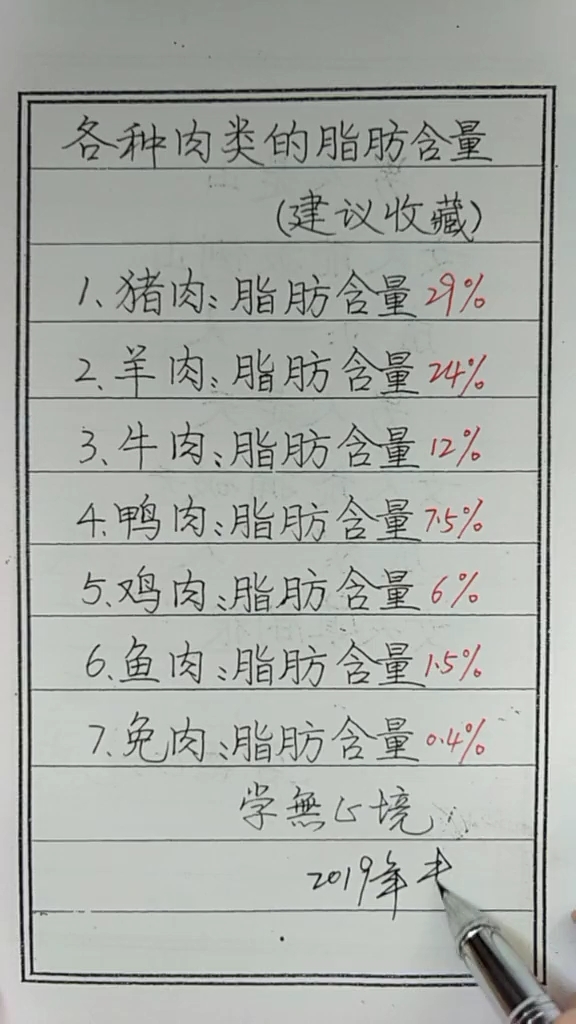 各种肉类的脂肪含量
(建议收藏)
1、猪肉:脂肪含量29%
2、羊肉:脂肪含量24%
3、牛肉:脂肪含量12%
4、鸭肉:脂肪含量7.5%
5、鸡肉:脂肪含量6%
6、鱼肉:脂肪含量1.5%
7、兔肉:脂肪含量0.4%
学無止境
2019年